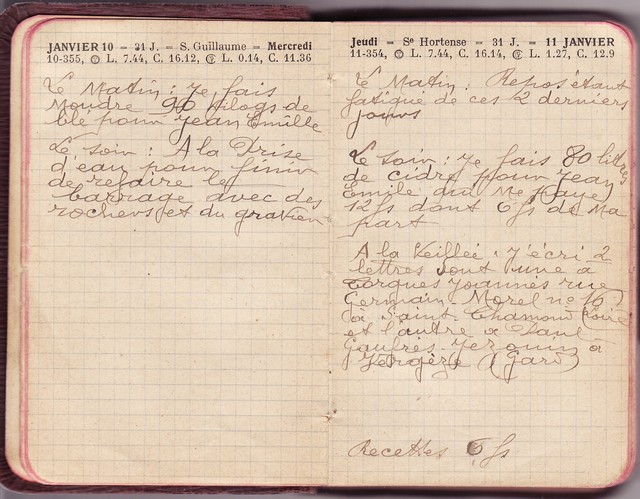 JANVIER 10 = 31 J. = S. Guillaume = Mercredi
10-355, L. 7.44, C. 16.12, L. 0.14, C. 11.36
Le Matin : Je fais
Moudre 90 kilogs de
blé pour Jean Emille
Le soir : A la Prise
d'eau pour finir
de refaire le
barrage avec des
rochers et du gravier
Jeudi = Se Hortense = 31 J. = 11 JANVIER
11-354, L. 7.44, C. 16.14, L. 1.27, C. 12.9
Le Matin, Repos étant
fatigué de ces 2 derniers
jours
Le soir : Je fais 80 litres
de cidre pour Jean
Emile qui Me paye
12 fs dont 6 fs de Ma
part
A la Veillée : J'écri 2
lettres dont une à
Joannès rue
Germain-Morel no 16
à Saint Chamond (Loire
et l'autre a Paul
Gaufrès à
Vergèze (Gard)
Recettes 6 fs